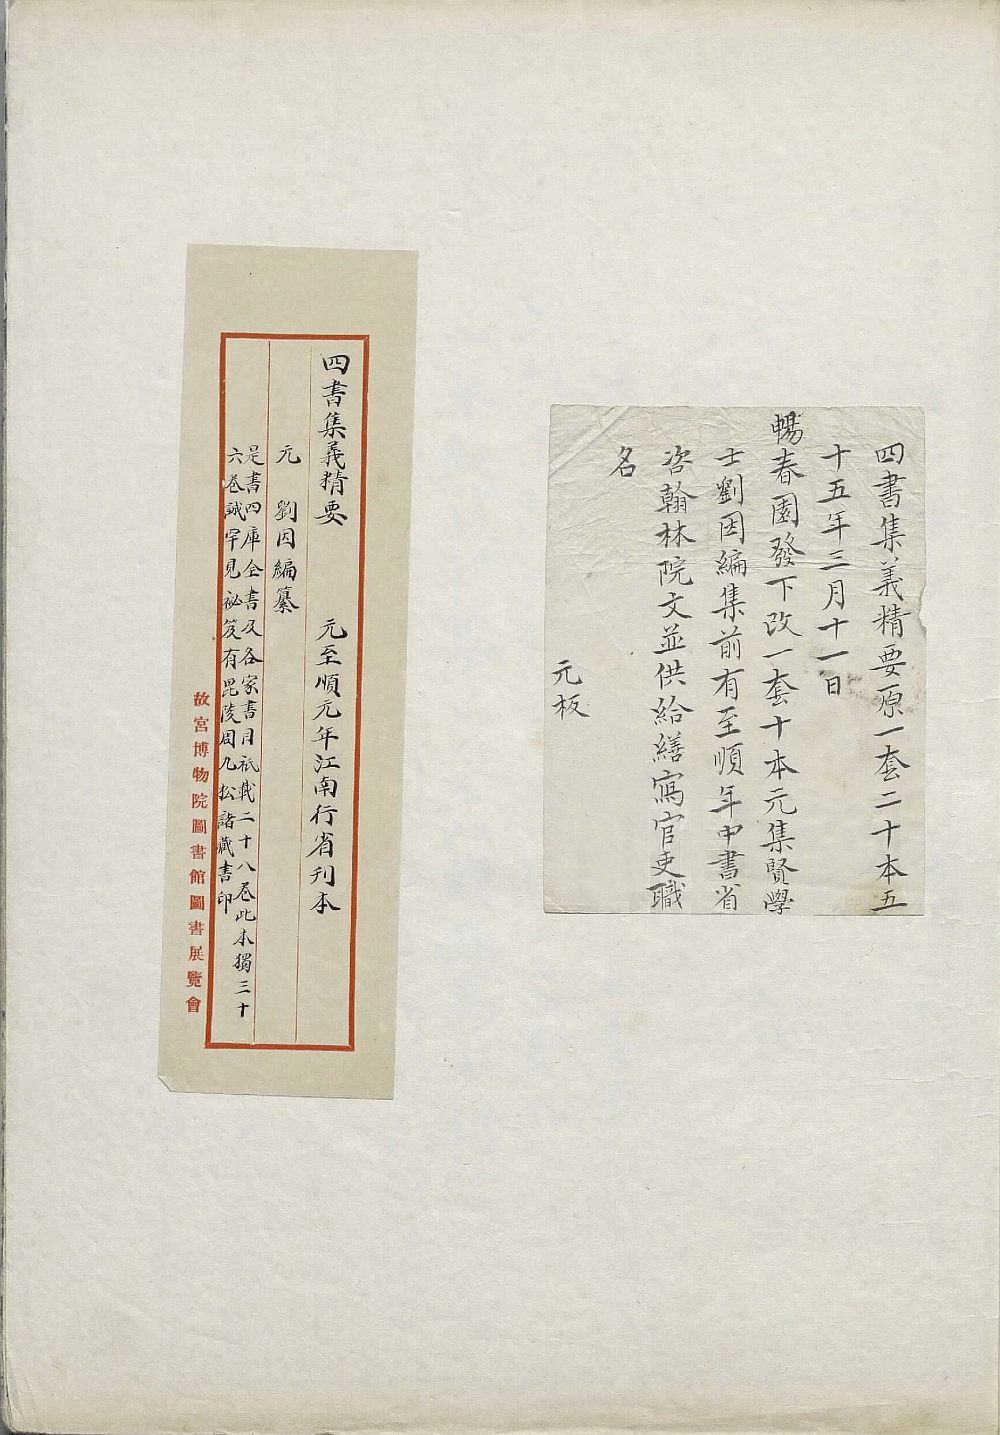 四書集義精要原一套二十本五
十五年三月十一日
暢春園發下改一套十本元集賢學
士劉因編集前有至順年中書省
咨翰林院文並供給繕寫官吏職
名
元板
四書集義精要 元至順元年江南行省刊本
元 劉因編纂
是書四庫全書及各家書目祇載二十八卷此本獨三十
六卷誠罕見祕笈有毘陵周九松諸藏書印
故宮博物院圖書館圖書展覽會